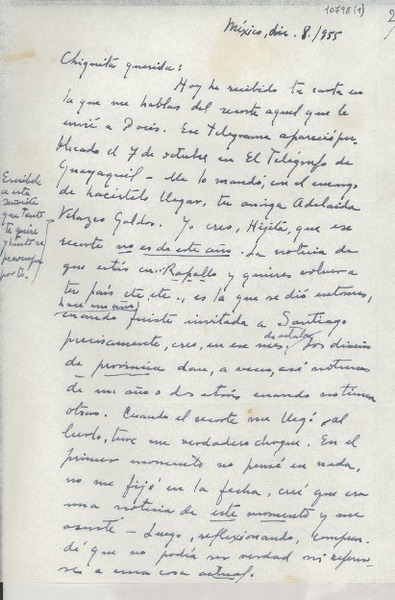 10798(1)
2
México, dic. 8./955
Chiquita querida:
Hoy he recibido tu carta en
la que me hablas del recorte aquel que le
envié a Doris. Ese telegrama apareció pu-
blicado el 7 de octubre en El Telégrafo de
Guayaquil - Me lo mandó, en el encargo
de hacértelo llegar, tu amiga Adelaida
Velazco Galdos. Yo creo, Hijita, que ese
recorte no es de este año. La noticia de
que estás en Rapallo y quieres volver a
tu país etc etc., es la que se dió entonces,
hace un año,
cuando fuiste invitada a Santiago
de octubre
precisamente, creo, en ese mes. Los diarios
de provincia dan, a veces, así noticias
de un año o dos atrás cuando no tienen
otras. Cuando el recorte me llegó, al
leerlo, tuve un verdadero choque. En el
primer momento no pensé en nada,
no me fijé en la fecha, creí que era
una noticia de este momento y me
asusté - Luego, reflexionando, compren-
dí que no podía ser verdad ni referir-
se a una cosa actual.
Escríbele
a esta
señorita
que tanto
te quiere
y tanto se
preocupa
por ti.